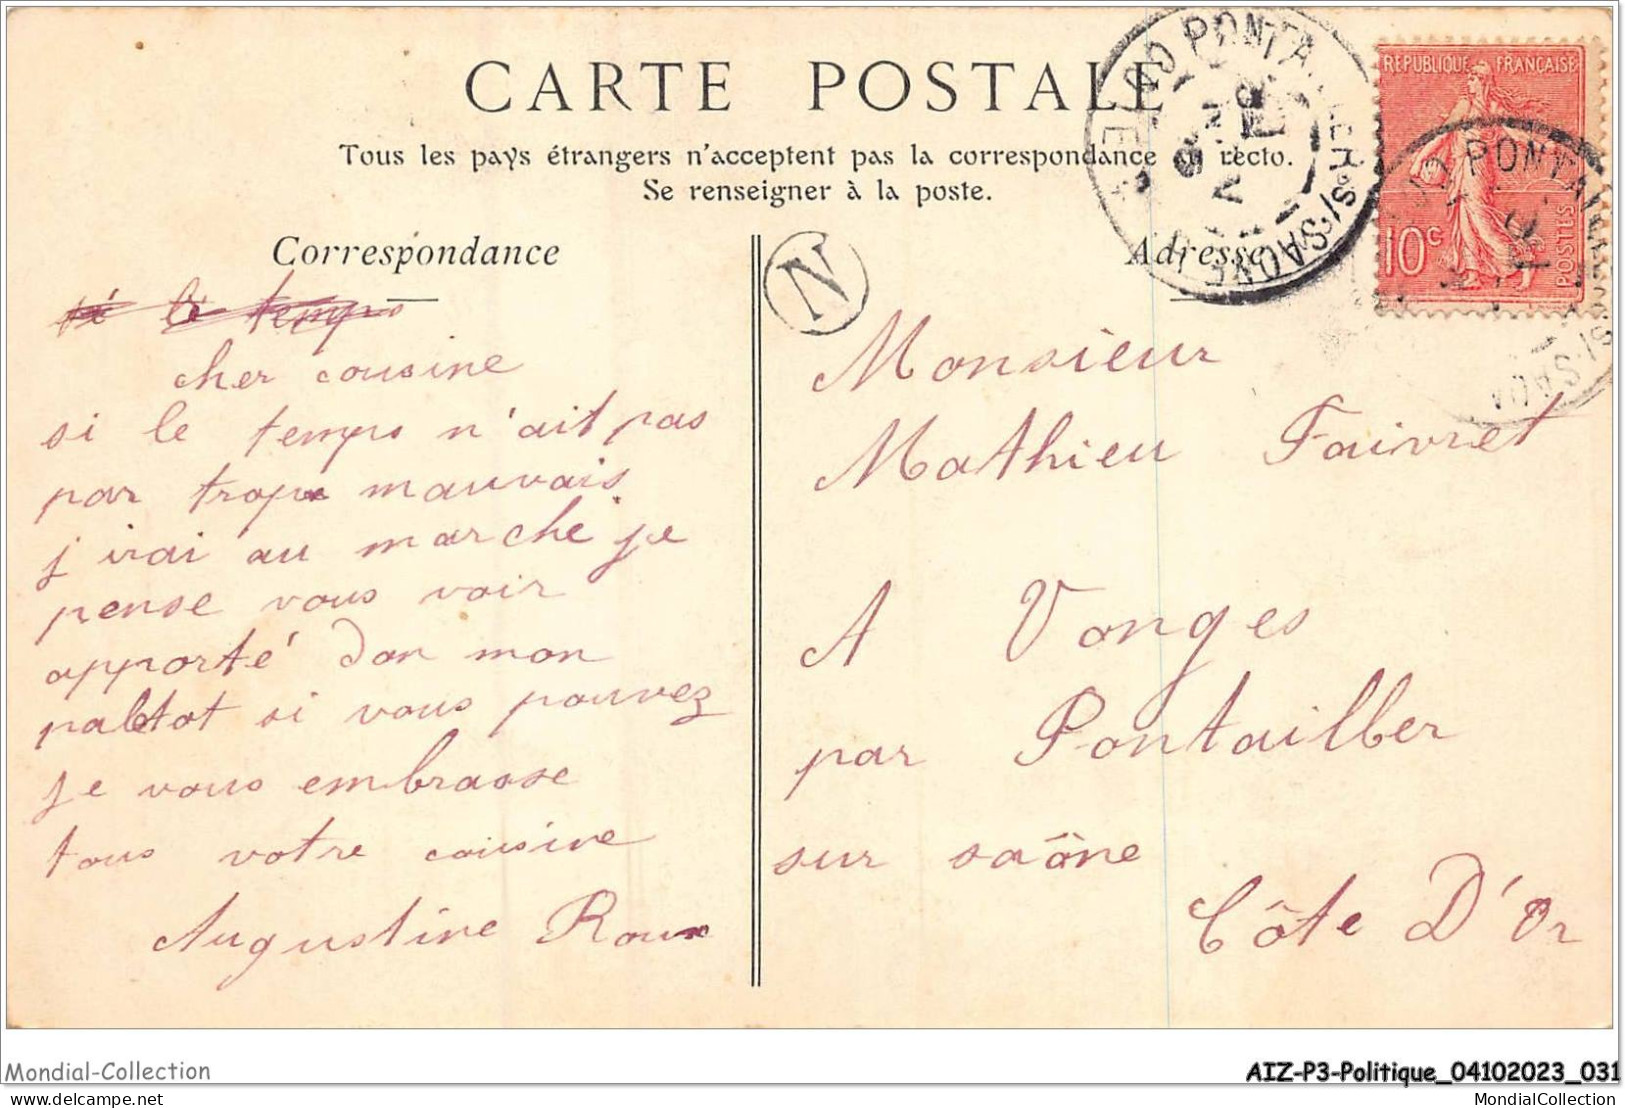 CARTE POSTALE
Tous les pays étrangers n'acceptent pas la correspondance au recto.
Se renseigner à la poste.
Correspondance
si le temps
cher cousine
si le temps n'ait pas
par trop mauvais
j irai au marche je
pense vous voir
apporté dan mon
paletot si vous pouvez
je vous embrasse
tous votre cousine
Augustine Roux
N
Adresse
Monsieur
Mathieu Faivret
A Vonges
par Pontailber
sur saône
Côte D'Or
PONTAILLER-S/-SAONE
REPUBLIQUE FRANÇAISE
10c POSTES
Mondial-Collection
AIZ-P3-Politique_04102023_031
delcampe.net
MondialCollection